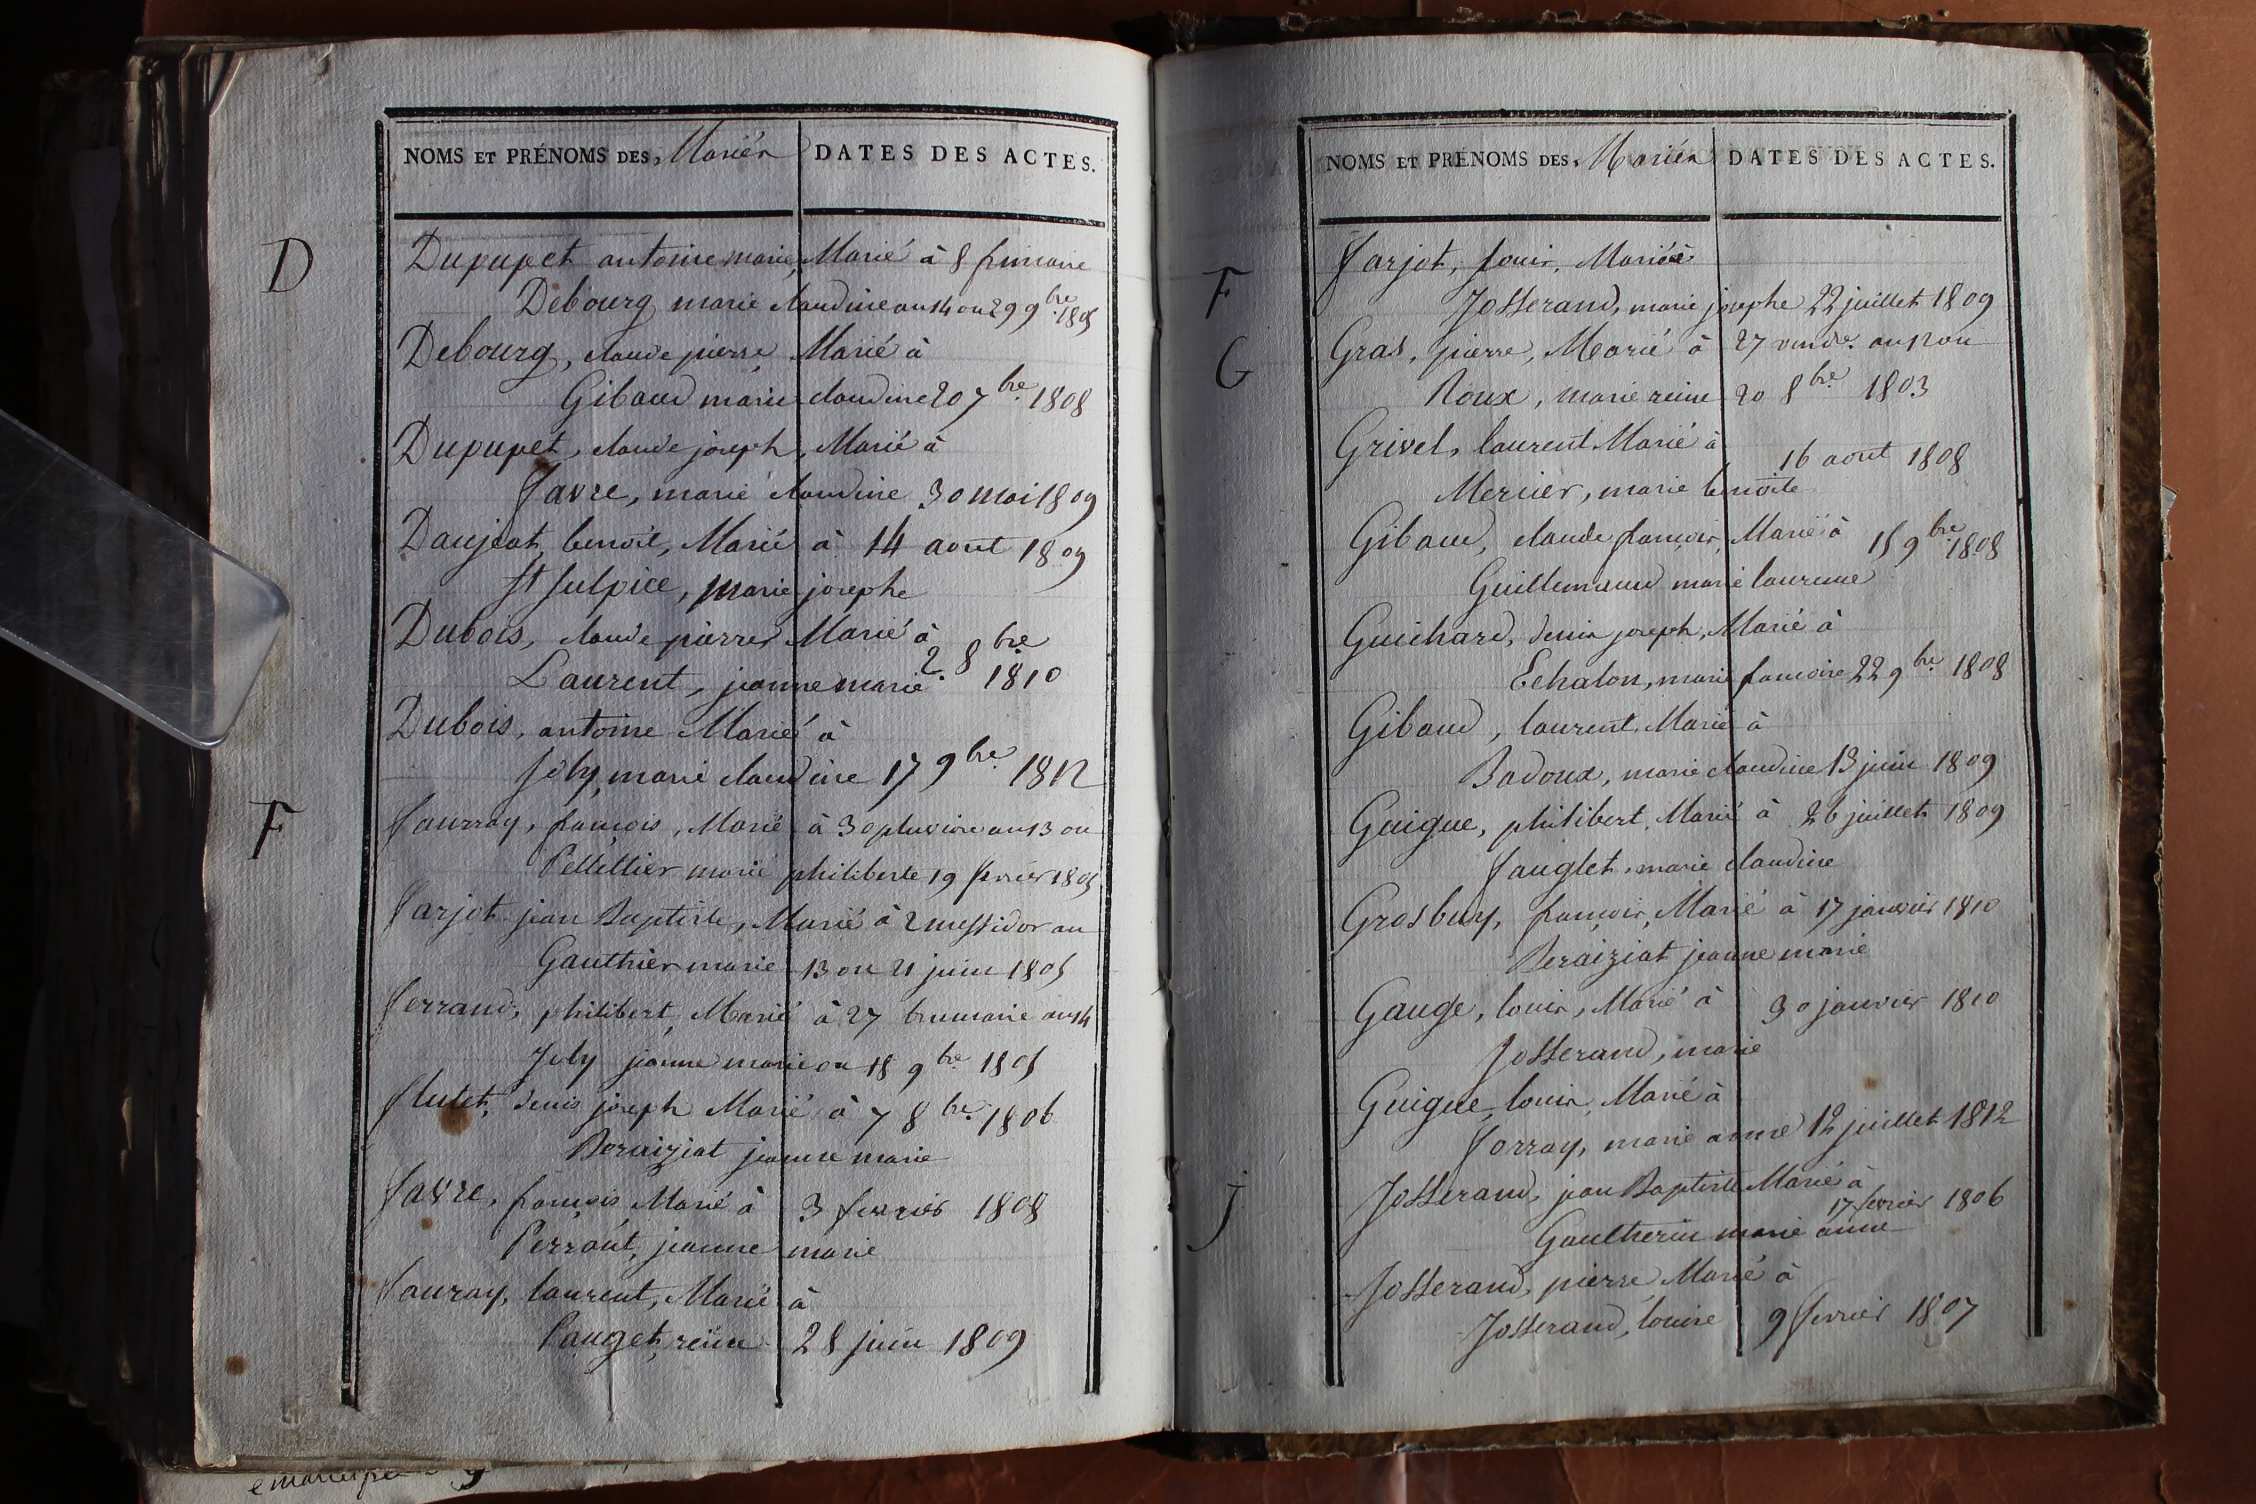 NOMS ET PRÉNOMS DES Mariés DATES DES ACTES.
D
Dupupet antoine marie, Marié à 8 frimaire
Debourg marie claudine an 14 ou 29 9bre 1805
Debourg, claude pierre, Marié à
Gibaud marie claudine 20 7bre 1808
Dupupet, claude joseph, Marié à
favre, marie claudine 30 mai 1809
Daujeat, benoit, Marié à 14 aout 1809
St Sulpice, marie josephe
Dubois, claude pierre, Marié à
Laurent, jeanne marie 2 8bre 1810
Dubois, antoine Marié à
Joly, marie claudine 17 9bre 1812
F
faurray, françois, Marié à 30 pluviose an 13 ou
Pellettier marie philiberte 19 fevrier 1805
farjot jean Baptiste, Marié à 2 messidor an
Gauthier marie 13 ou 21 juin 1805
ferrand, philibert, Marié à 27 brumaire an 14
Joly jeanne marie ou 18 9bre 1805
flutet, denis joseph Marié à 7 8bre 1806
Beraiziat jeanne marie
favre, françois Marié à 3 fevrier 1808
Perraut, jeanne marie
fauray, laurent, Marié à
Pauget, reine 28 juin 1809
NOMS ET PRÉNOMS DES Mariés DATES DES ACTES.
F
farjot, louis, Marié à
Josserand, marie josephe 22 juillet 1809
G
Gras, pierre, Marié à 27 vendre. an 12 ou
Roux, marie reine 20 8bre 1803
Grivel, laurent Marié à
Mercier, marie benoite 16 aout 1808
Gibaud, claude françois, Marié à 15 9bre 1808
Guillemaud marie laurence
Guichard, denis joseph, Marié à
Echalon, marie françoise 22 9bre 1808
Gibaud, laurent, Marié à
Badoux, marie claudine 13 juin 1809
Guigue, philibert, Marié à 26 juillet 1809
fauglet, marie claudine
Grosbuy, françois, Marié à 17 janvier 1810
Beraiziat jeanne marie
Gauge, louis, Marié à 30 janvier 1810
Josserand, marie
Guigue, louis, Marié à
forray, marie anne 12 juillet 1812
J
Josserand, jean Baptiste Marié à
17 fevrier 1806
Gautherin marie anne
Josserand, pierre Marié à
Josserand, louise 9 fevrier 1807